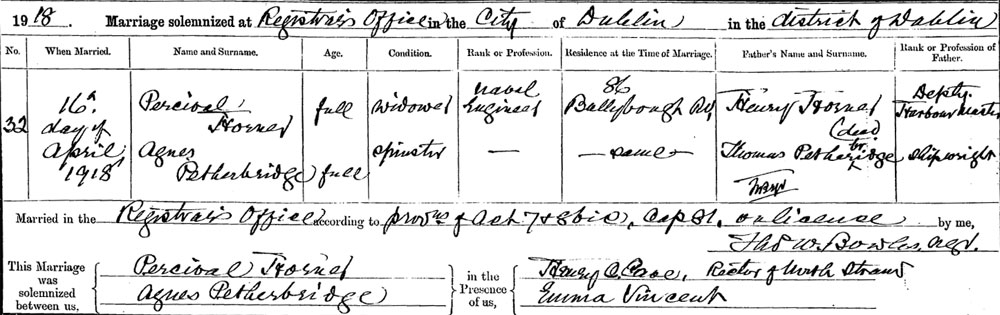 1918. Marriage solemnized at Registrar's Office in the City of Dublin in the district of Dublin
No. When Married. Name and Surname. Age. Condition. Rank or Profession. Residence at the Time of Marriage. Father's Name and Surname. Rank or Profession of Father.
32 16th day of April 1918 Percival Horner full widower naval Engineer 86 Ballybough Rd, Henry Horner (dead) Depty. Harbour Master
Agnes Petherbridge full spinster — — same — Thomas Petherbridge shipwright
Married in the Registrar's Office according to provns of Act 7 & 8 Vic, Cap 81, on license by me,
Thos W. Bowles, Regr.
This Marriage was solemnized between us, Percival Horner in the Presence of us, Henry C. Cave, Rector of North Strand
Agnes Petherbridge Emma Vincent